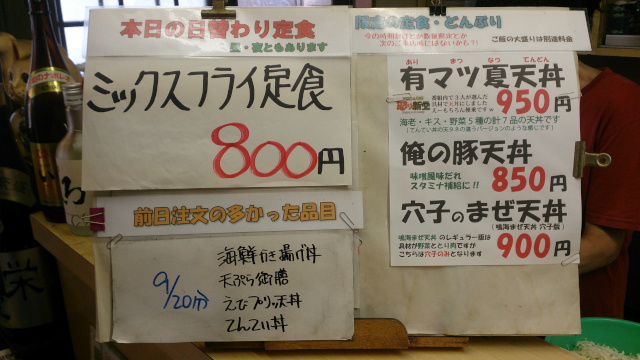 本日の日替わり定食
昼・夜ともあります
ミックスフライ定食
800円
前日注文の多かった品目
9/20分
海鮮かき揚げ丼
天ぷら御膳
えびプリッ天丼
てんてい丼
限定の定食・どんぶり
ご飯の大盛りは別途料金
あり まつ なつ てんどん
有マツ夏天丼
950円
海老・キス・野菜5種の計7品の天丼です
俺の豚天丼
味噌風味だれ
スタミナ補給に!!
850円
穴子のまぜ天丼
(鳴海まぜ天丼 穴子版)
鳴海まぜ天丼 のレギュラー版は
具材が野菜ととり肉ですが
こちらは穴子のみとなります
900円